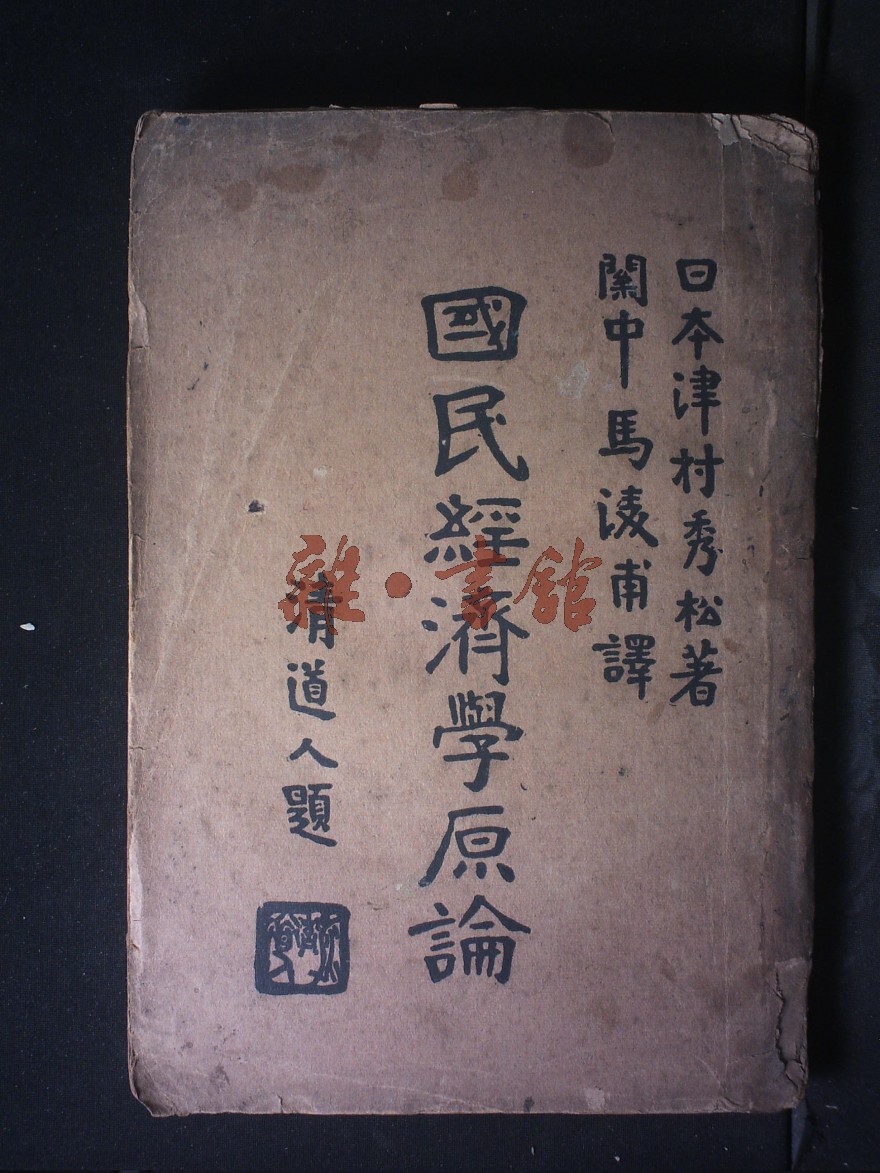 日本津村秀松著
關中馬凌甫譯
國民經濟學原論
清道人題
雜·書館